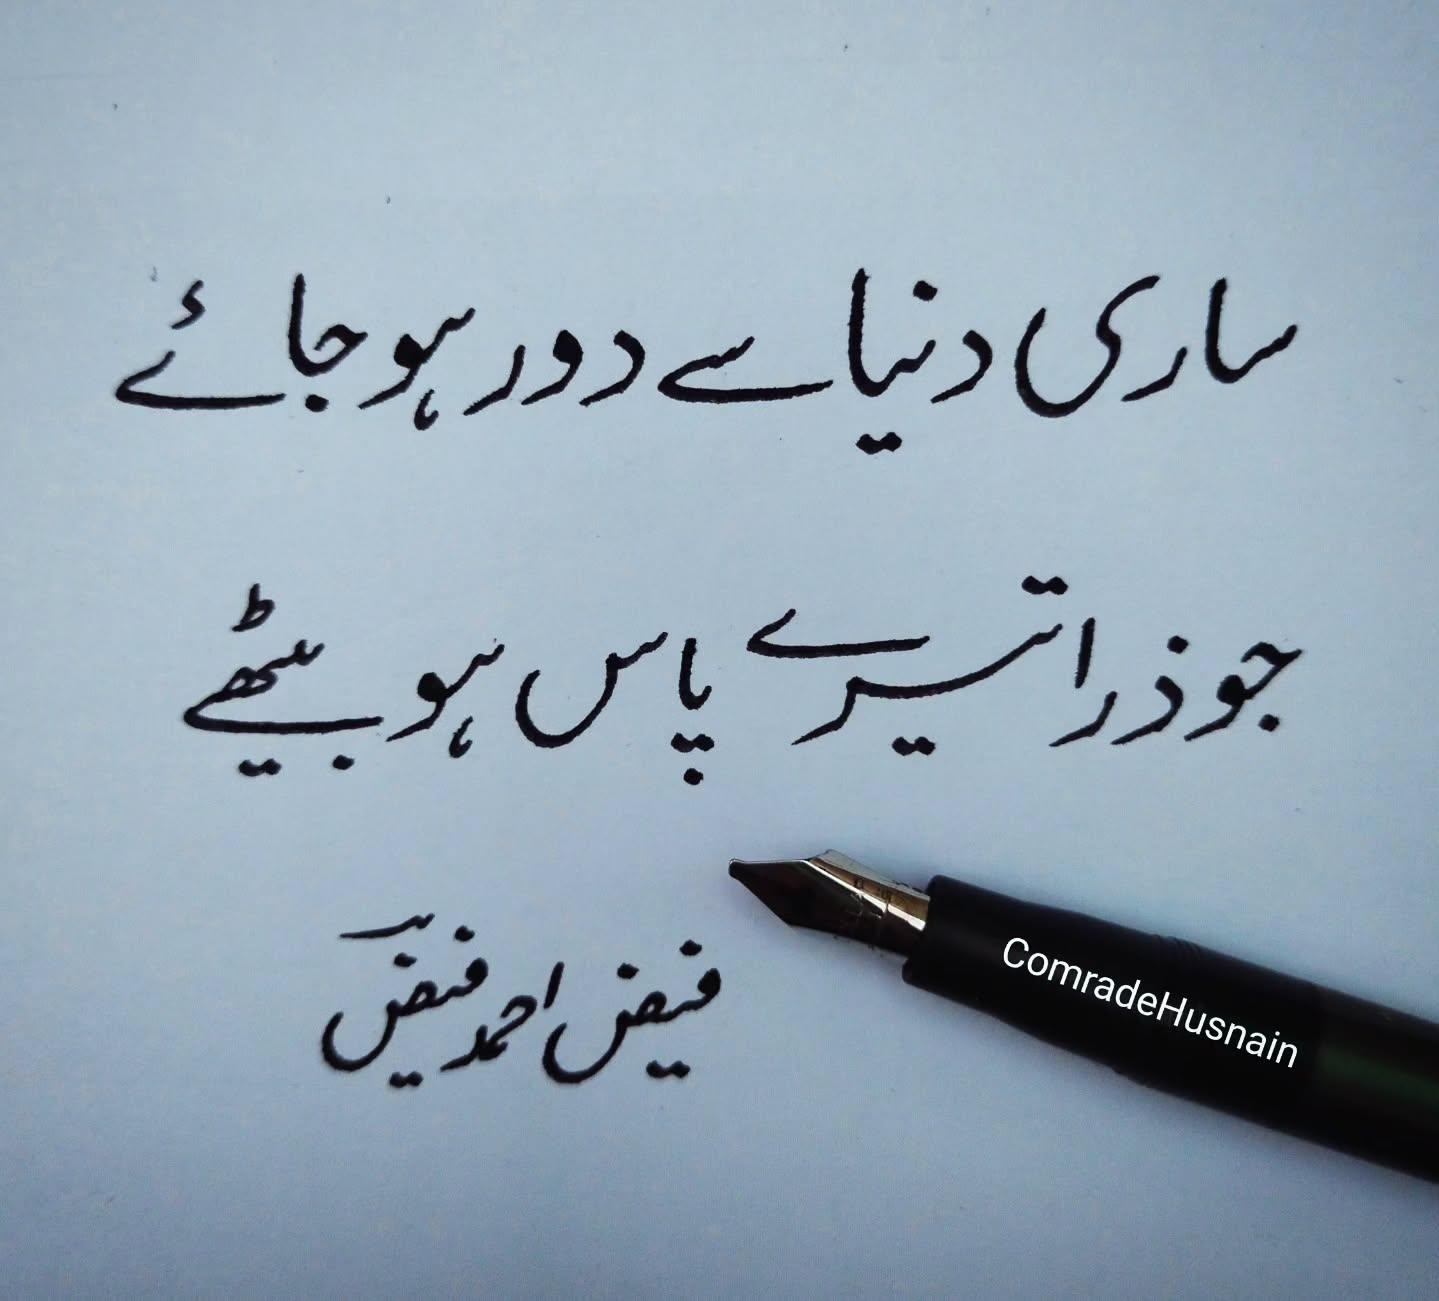 ساری دنیا سے دور ہو جائے
جو ذرا تیرے پاس ہو بیٹھے
فیض احمد فیضؔ
ComradeHusnain